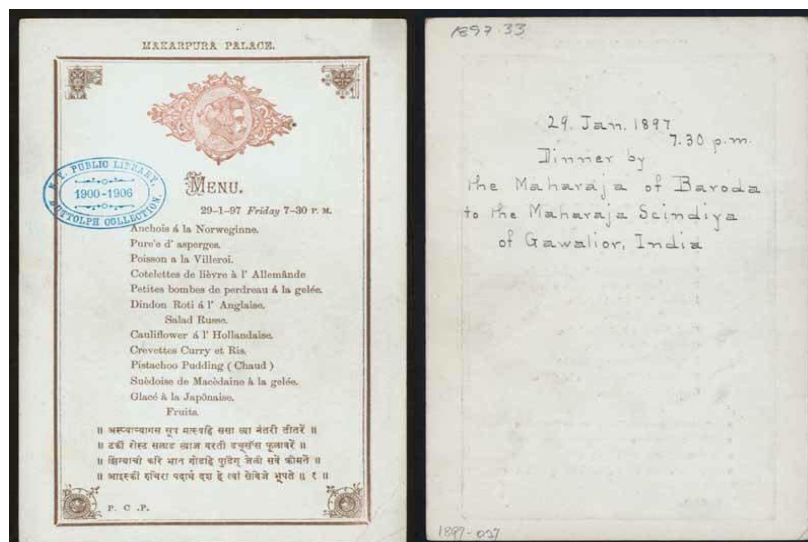 MAKARPURA PALACE.
N. Y. PUBLIC LIBRARY,
1900-1906
BUTTOLPH COLLECTION.
MENU.
29-1-97 Friday 7-30 P. M.
Anchois á la Norweginne.
Pure'e d' asperges.
Poisson a la Villeroi.
Cotelettes de lièvre à l' Allemânde
Petites bombes de perdreau á la gelée.
Dindon Roti á l' Anglaise.
Salad Russe.
Cauliflower á l' Hollandaise.
Crevettes Curry et Ris.
Pistachoo Pudding ( Chaud )
Suèdoise de Macèdaine à la gelée.
Glacé à la Japônaise.
Fruits.
॥ सूप ससा त्या नेतरी तीतरें ॥
॥ टर्की रोस्ट सलाड त्याज वरती फूलावरें ॥
॥ झिंग्याची करि भात गोडाहे पुडिंग् जेली सवे क्रीमनें ॥
॥ आइस्की रुचिरा पदार्थ दश हे त्वां सेविजे भूपते ॥ १ ॥
P. C .P.
1897.33
29. Jan. 1897
7.30 p.m.
Dinner by
the Maharaja of Baroda
to the Maharaja Scindiya
of Gawalior, India
1897-057